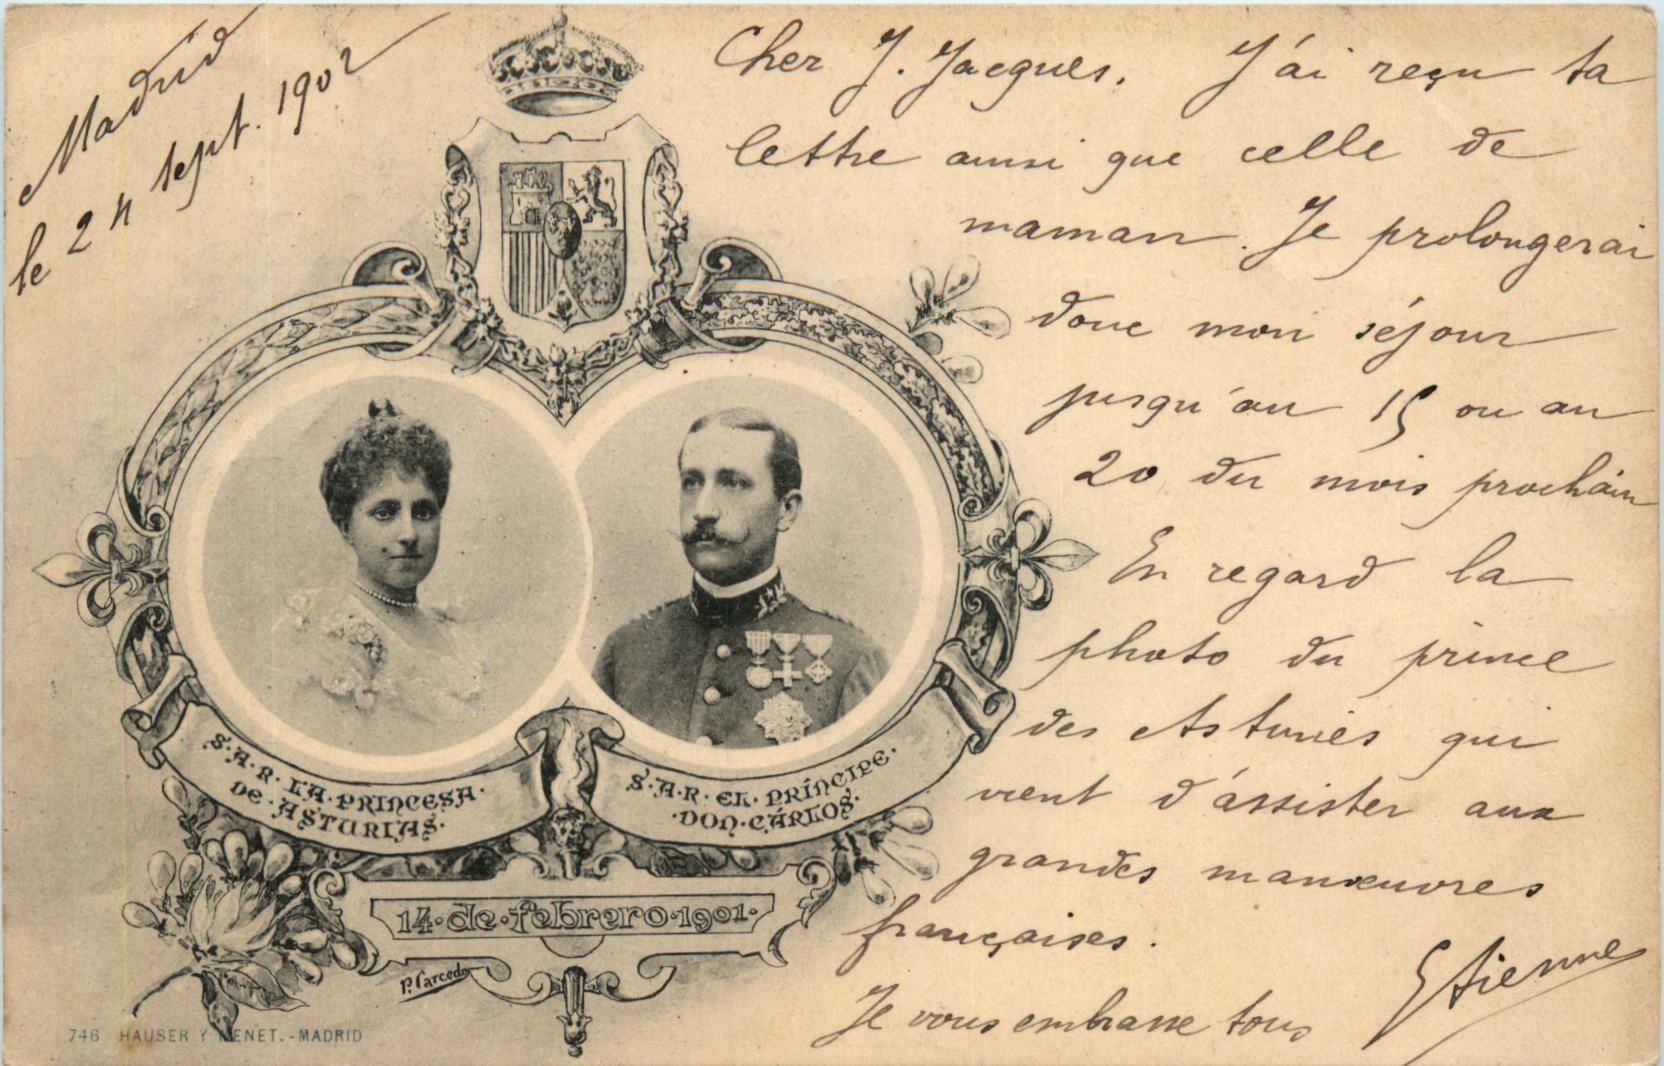 Madrid
le 24 sept. 1902
Cher J. Jacques. J'ai reçu ta
lettre ainsi que celle de
maman. Je prolongerai
donc mon séjour
jusqu'au 15 ou au
20 du mois prochain
En regard la
photo du prince
des Asturies qui
vient d'assister aux
grandes manœuvres
françaises.
Je vous embrasse tous
Etienne
S·A·R·LA·PRINCESA·
DE·ASTURIAS·
S·A·R·EL·PRÍNCIPE·
·DON·CÁRLOS·
14·de·febrero·1901·
P. Carcedo
746 HAUSER Y MENET.-MADRID